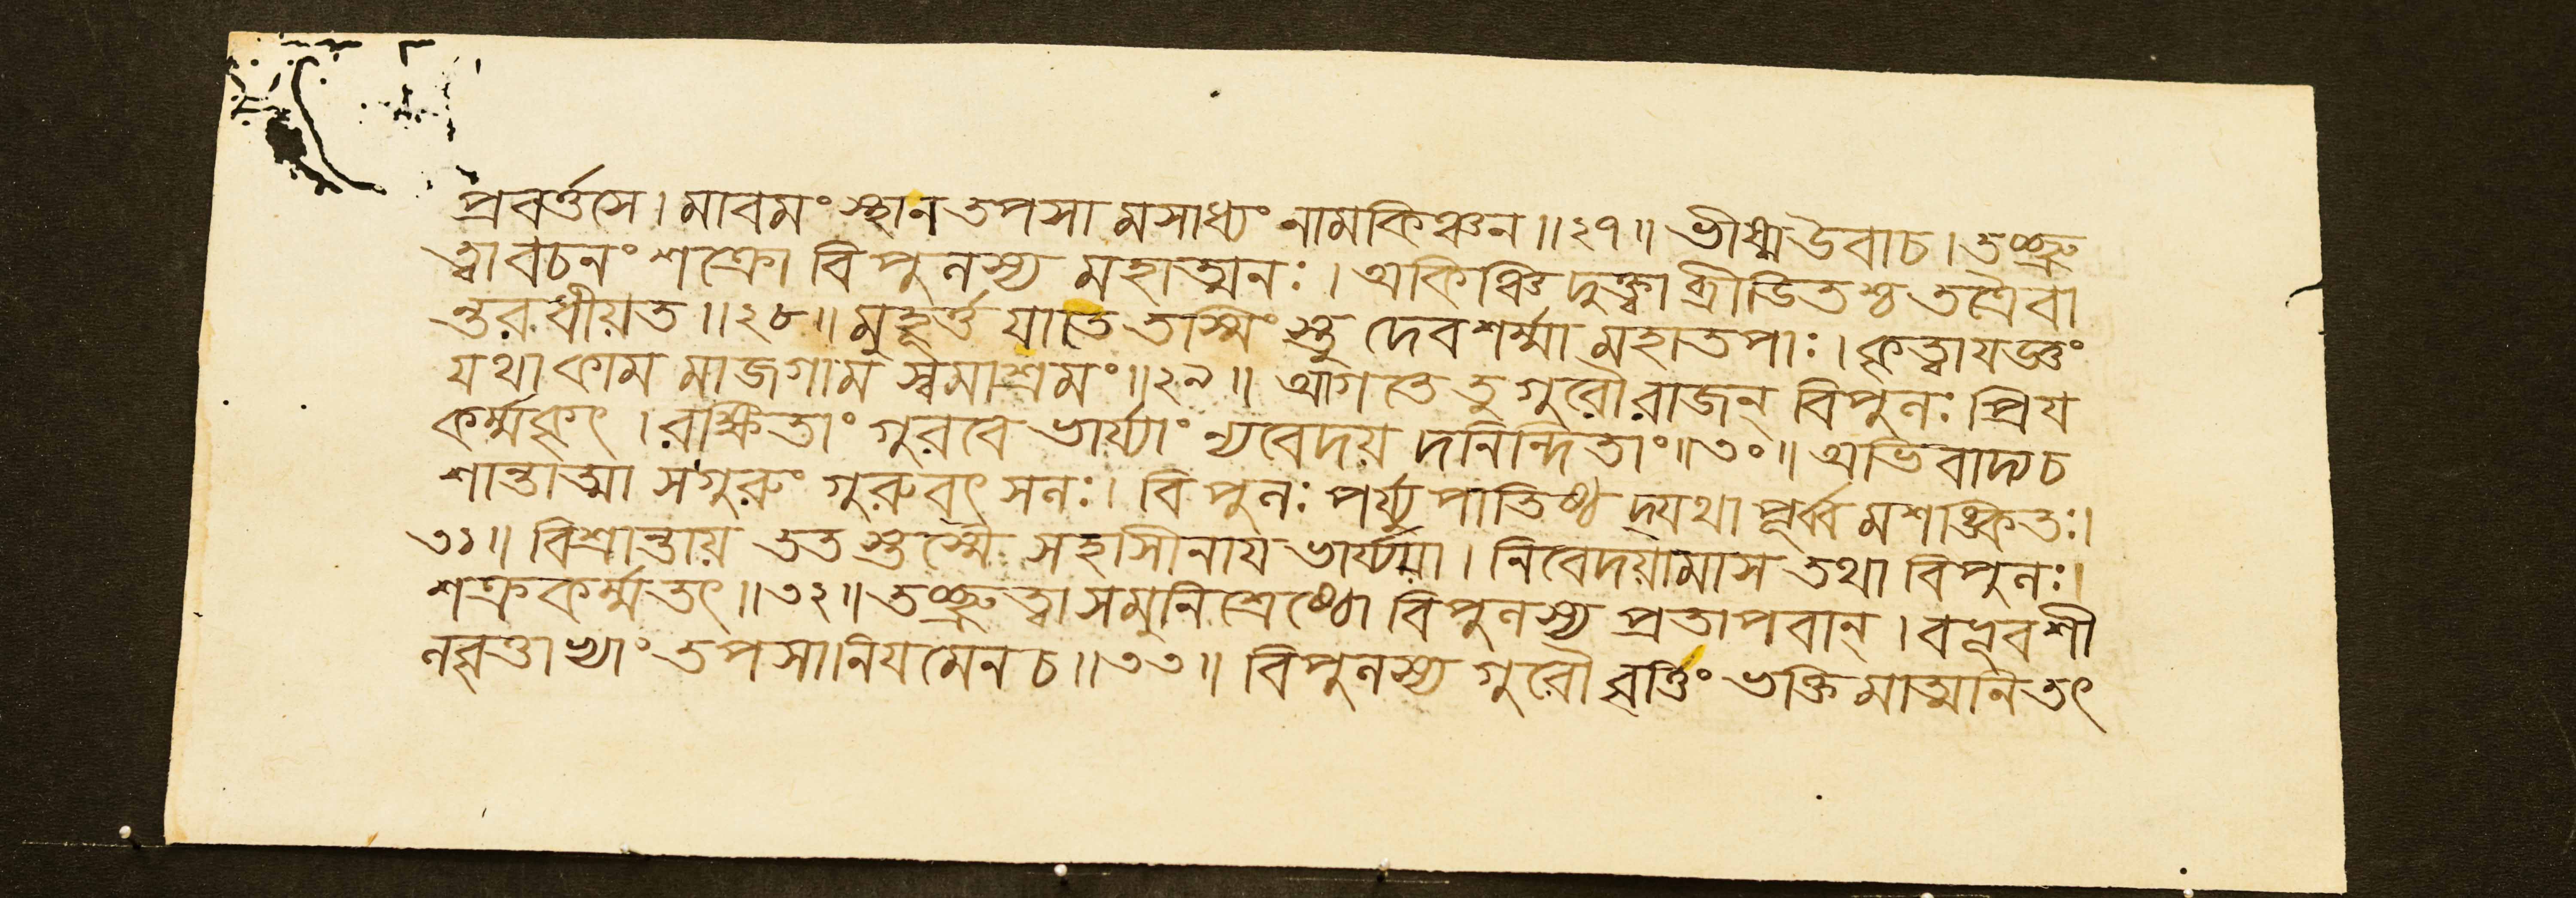 প্রবর্ত্তসে। মাবমংস্থান তপসা মসাধ্যং নামকিঞ্চন॥২৭॥ ভীষ্মউবাচ। তচ্ছ্রু
ত্বাবচনং শক্রো বিপুলস্য মহাত্মনঃ। অকিঞ্চিদুক্ত্বা ব্রীডিতশ্চ তত্রৈবা
ন্তরধীয়ত॥২৮॥ মুহূর্ত্ত যাতে তস্মিংস্তু দেবশর্ম্মা মহাতপাঃ। কৃত্বাযজ্ঞং
যথাকাম মাজগাম স্বমাশ্রমং॥২৯॥ আগতে তুগুরৌরাজন্ বিপুলঃ প্রিয
কর্ম্মকৃৎ। রক্ষিতাং গুরবে ভার্য্যাং ন্যবেদয় দনিন্দিতাং॥৩০॥ অভিবাদ্যচ
শান্তাত্মা সগুরুং গুরুবৎসলঃ। বিপুলঃ পর্য্যুপাতিষ্ঠ দ্যথা পূর্ব্বমশঙ্কিতঃ।
৩১॥ বিশ্রান্তায় ততস্তস্মৈ সহাসীনায ভার্য্যয়া। নিবেদয়ামাস তথা বিপুলঃ।
শক্রকর্ম্মতৎ॥৩২॥ তচ্ছ্রুত্বাসমুনিশ্রেষ্ঠো বিপুলস্য প্রতাপবান্। বভূবশী
লবৃত্তাভ্যাং তপসানিযমেনচ॥৩৩॥ বিপুলস্য গুরৌ বৃত্তিং ভক্তিমাত্মনিতৎ